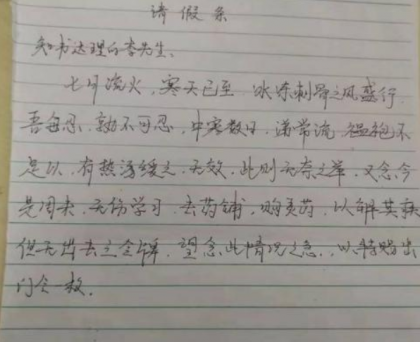 请假条
知书达理的李先生、
七月流火，寒天已至 冰冻刺骨之风盛行
吾每忍，孰不可忍，中寒数日，涕常流 缊袍不
足以，有热汤缓之，无效，此则无奈之举，又念今
是周末，无伤学习 去药铺，购灵药，以解其疾
但无出去之令牌，望念此情况之急，以特赐出
门令一枚.